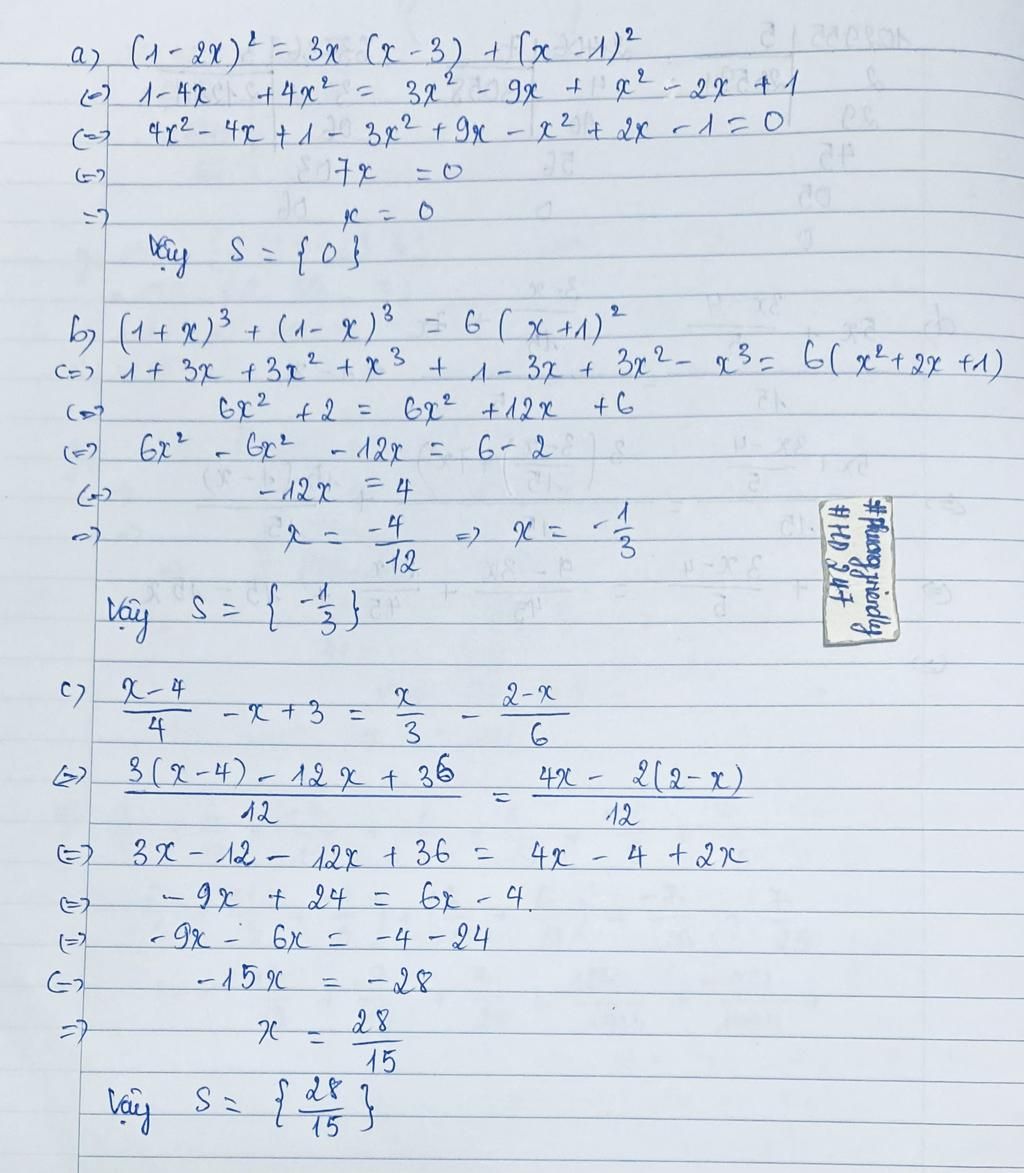 a) (1 - 2x)² = 3x (x - 3) + (x - 1)²
(=) 1 - 4x + 4x² = 3x² - 9x + x² - 2x + 1
(=) 4x² - 4x + 1 - 3x² + 9x - x² + 2x - 1 = 0
(=) 7x = 0
=) x = 0
Vậy S = { 0 }
b) (1 + x)³ + (1 - x)³ = 6 ( x + 1 )²
(=) 1 + 3x + 3x² + x³ + 1 - 3x + 3x² - x³ = 6( x² + 2x + 1)
(=) 6x² + 2 = 6x² + 12x + 6
(=) 6x² - 6x² - 12x = 6 - 2
(=) -12x = 4
=) x = -4/12 =) x = -1/3
Vậy S = { -1/3 }
#phuongfriendly
#HD 247
c) (x - 4)/4 - x + 3 = x/3 - (2 - x)/6
(=) (3(x - 4) - 12x + 36)/12 = (4x - 2(2 - x))/12
(=) 3x - 12 - 12x + 36 = 4x - 4 + 2x
(=) - 9x + 24 = 6x - 4.
(=) -9x - 6x = -4 - 24
(=) -15x = -28
=) x = 28/15
Vậy S = { 28/15 }